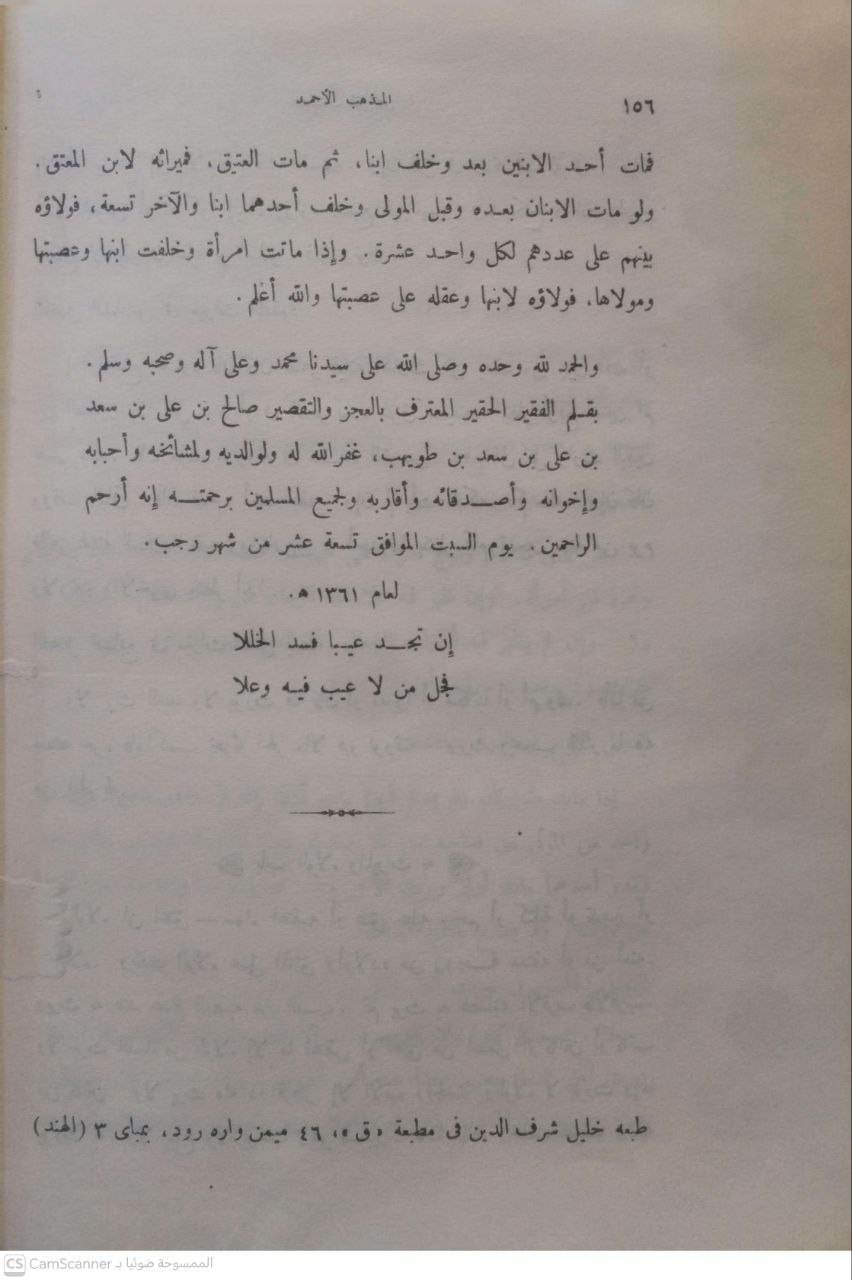 ١٥٦
المذهب الأحمد
فمات أحد الابنين بعد وخلف ابنا، ثم مات العتيق، فميراثه لابن المعتق.
ولو مات الابنان بعده وقبل المولى وخلف أحدهما ابنا والآخر تسعة، فولاؤه
بينهم على عددهم لكل واحد عشرة. وإذا ماتت امرأة وخلفت ابنها وعصبتها
ومولاها، فولاؤه لابنها وعقله على عصبتها والله أعلم.
والحمد لله وحده وصلى الله على سيدنا محمد وعلى آله وصحبه وسلم.
بقلم الفقير الحقير المعترف بالعجز والتقصير صالح بن على بن سعد
بن على بن سعد بن طويهب، غفر الله له ولوالديه ولمشائخه وأحبابه
وإخوانه وأصدقائه وأقاربه ولجميع المسلمين برحمته إنه أرحم
الراحمين. يوم السبت الموافق تسعة عشر من شهر رجب.
لعام ١٣٦١ ھ.
إن تجد عيبا فسد الخللا
فجل من لا عيب فيه وعلا
طبعه خليل شرف الدين فى مطبعة «ق»، ٤٦ ميمن واره رود، بمباى ٣ (الهند)
CS CamScanner الممسوحة ضوئيا بـ